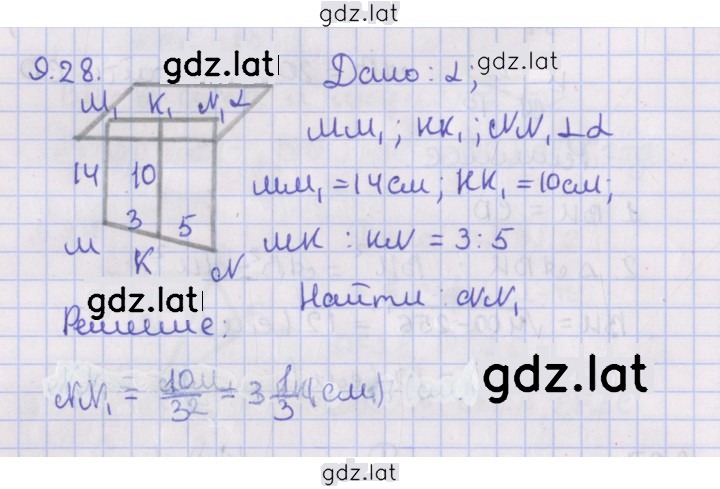 gdz.lat
9.28. gdz.lat Дано: α; gdz.lat
M₁ K₁ N₁ α
MM₁; KK₁; NN₁ ⊥ α
14 10
MM₁ = 14 см; KK₁ = 10 см;
3 5
M K N
MK : KN = 3 : 5
gdz.lat
Найти: NN₁
Решение:
NN₁ = = 3 1/3 (см)
gdz.lat
gdz.lat